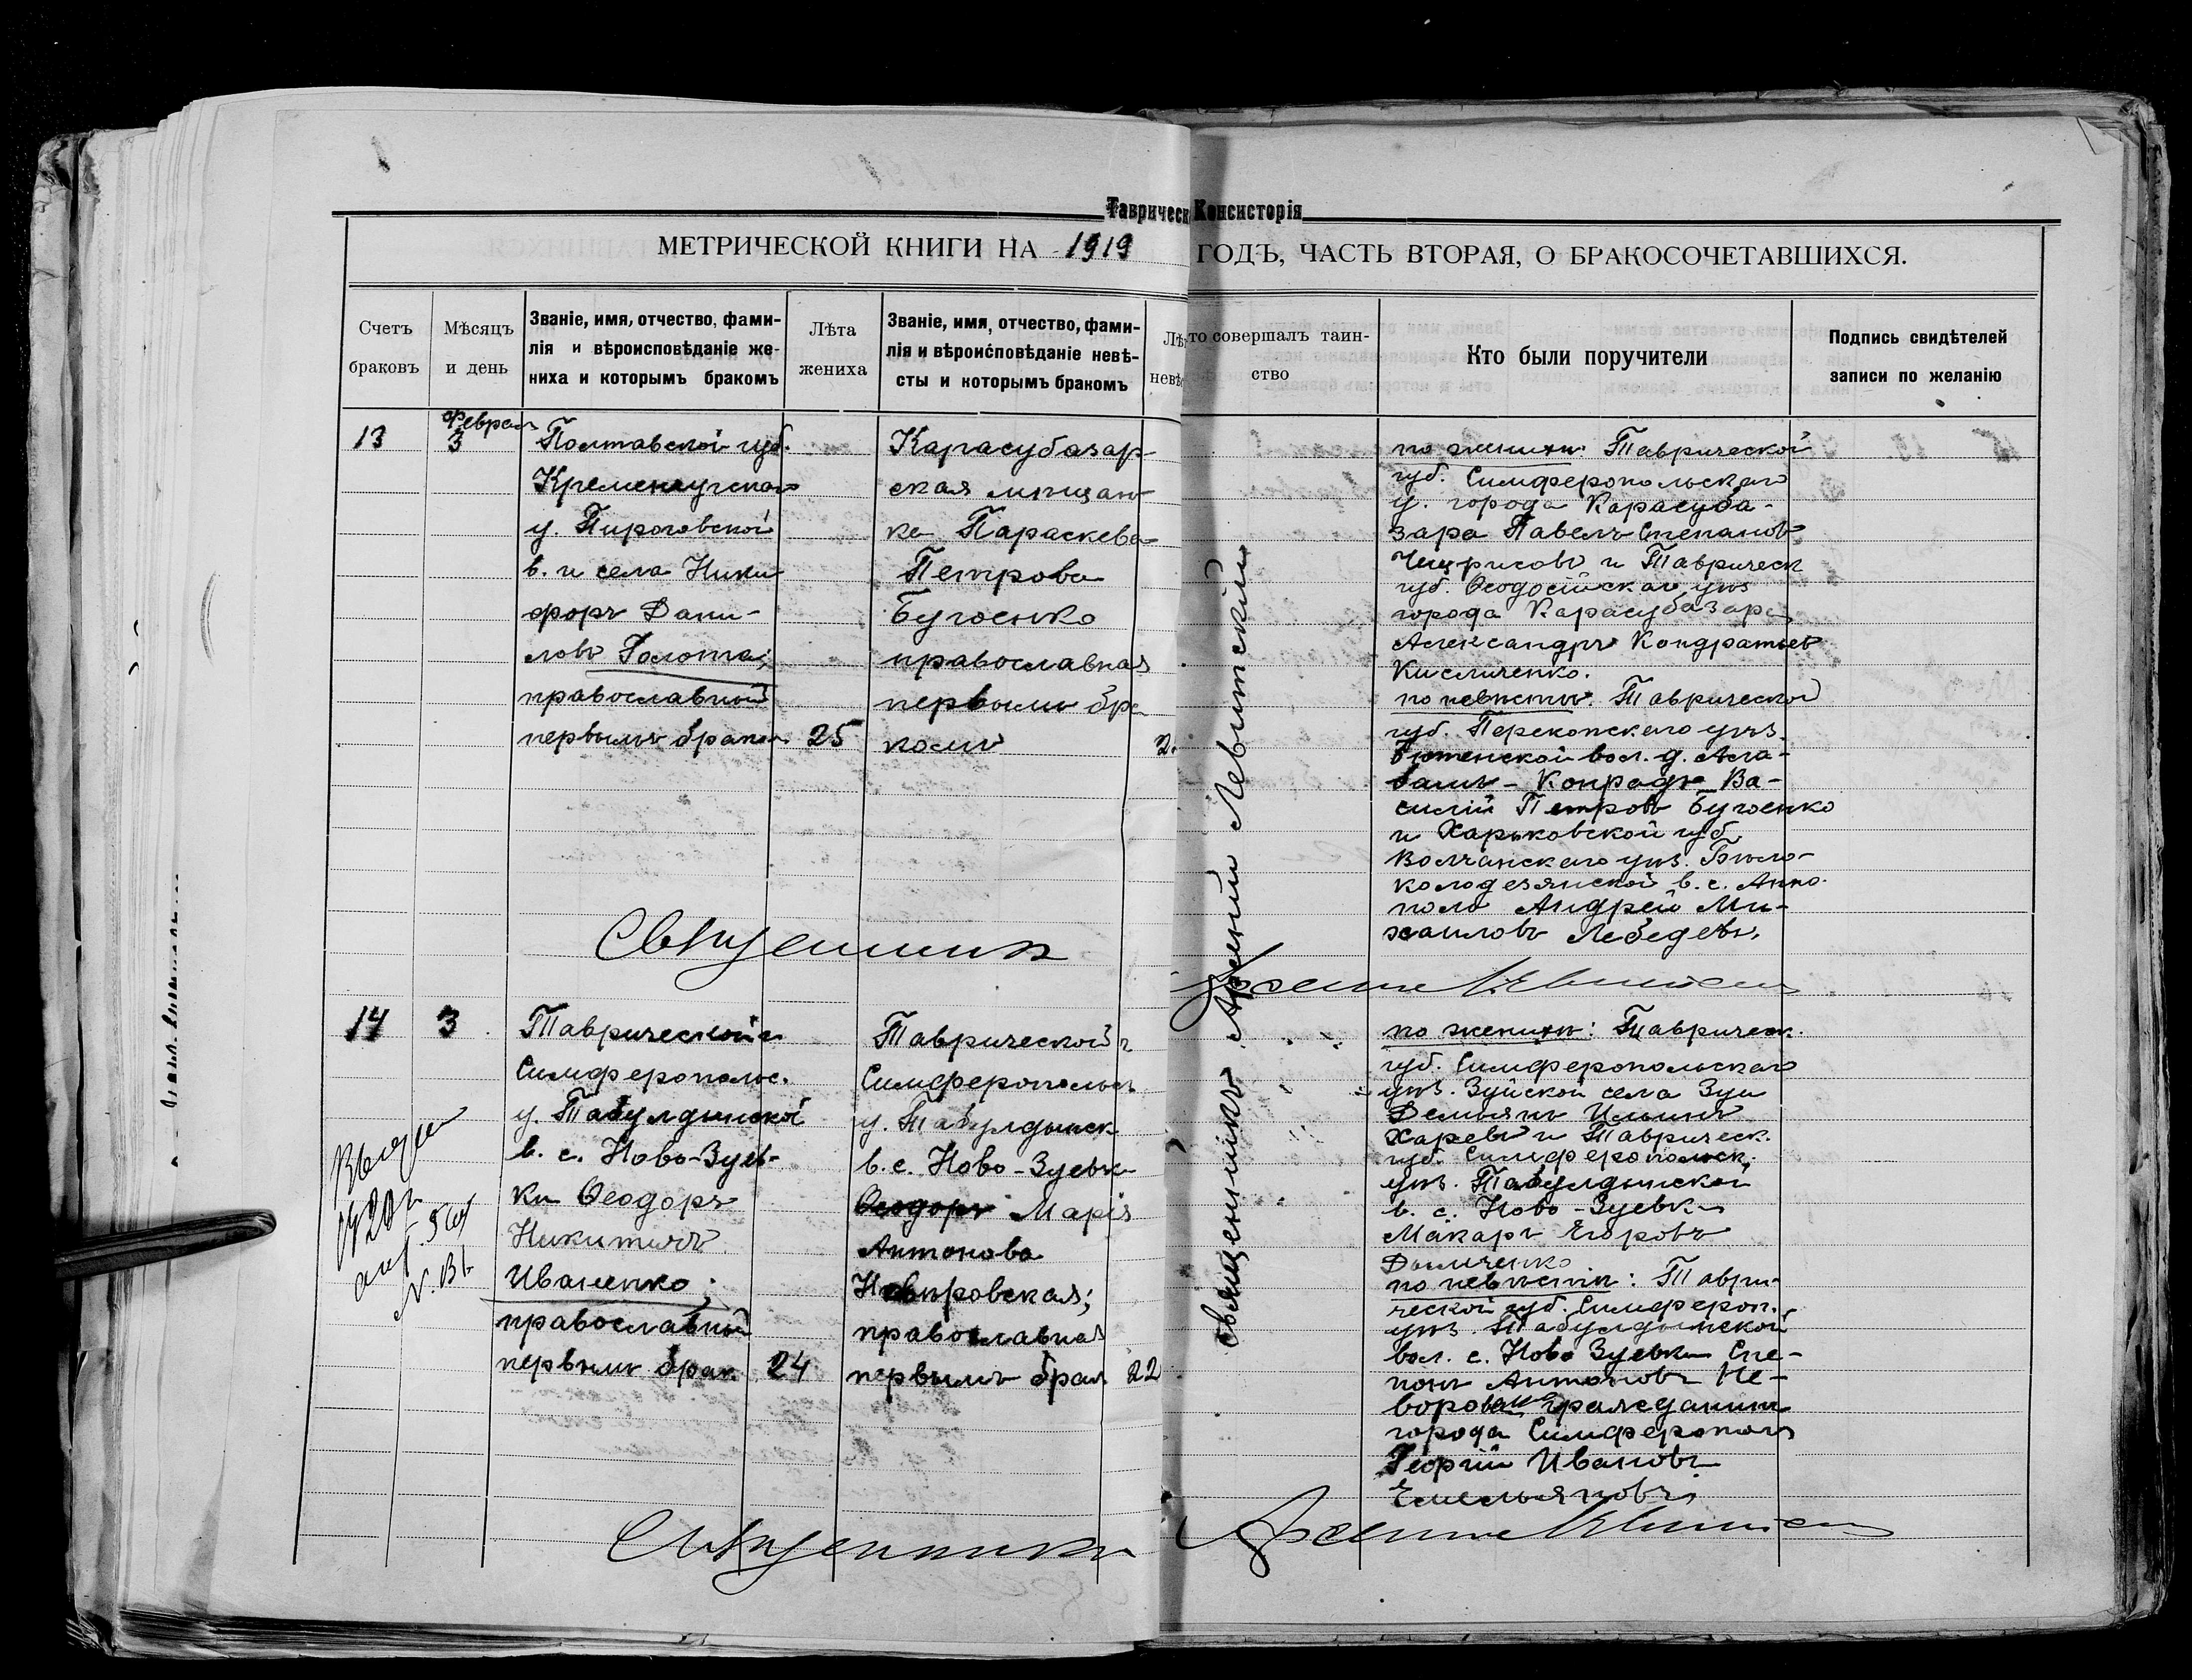 Таврическ Консисторія
МЕТРИЧЕСКОЙ КНИГИ НА 1919 ГОДЪ, ЧАСТЬ ВТОРАЯ, О БРАКОСОЧЕТАВШИХСЯ.
Счетъ
браковъ
Мѣсяцъ
и день
Званіе, имя, отчество, фами-
лія и вѣроисповѣданіе же-
ниха и которымъ бракомъ
Лѣта
жениха
Званіе, имя, отчество, фами-
лія и вѣроисповѣданіе невѣ-
сты и которымъ бракомъ
Лѣт
невѣс
то совершалъ таин-
ство
Кто были поручители
Подпись свидѣтелей
записи по желанію
13
Феврал
3
Полтавской губ.
Кременчугскаго
у. Пироговской
в. и села Ники
форъ Дани-
ловъ Голота;
православный
первымъ браком
25
Карасубазар-
ская мѣщан
ка Параскева
Петрова
Бугоенко
православная
первымъ бра
комъ
2
по женихѣ: Таврической
губ. Симферопольскаго
у. города Карасуба-
зара Павелъ Степановъ
и Таврическ
губ. Ѳеодосійскаго уѣз
города Карасубазара
Александръ Кондратьев
Кисличенко.
по невѣстѣ: Таврической
губ. Перекопскаго уѣз.
вол. д. Ага-
башъ - Конрадъ Ва-
силій Петровъ Бугоенко
и Харьковской губ.
Волчанскаго уѣз. Бѣло-
колодезянской в. с. Анно-
поло Андрей Ми-
хаиловъ Лебедевъ.
Священникъ Арсеній Левитскій
Священникъ Арсеній Левитскій
14
3
Таврической г
Симферополс.
у. Табулдинской
в. с. Ново-Зуев-
ки Ѳеодоръ
Никитичъ
Иваненко;
православный
первымъ брак.
24
Таврической г
Симферопольск
у. Табулдинск
в. с. Ново-Зуевк
Ѳеодоръ Марія
Антонова
православная
первымъ брак
22
по женихѣ: Таврическ.
губ. Симферопольскаго
уѣз. Зуйской села Зуи
Демьянъ Ильинъ
Харевъ и Таврическ.
губ. Симферопольск.
уѣз. Табулдинской
в. с. Ново-Зуевки
Макаръ Егоровъ
по невѣстѣ: Таври-
ческой губ. Симфероп.
уѣз. Табулдинской
вол. с. Ново Зуевки Сте-
панъ Антоновъ Не-
гражданин
города Симферополя
Георгій Ивановъ
Емельяновъ
Священникъ Арсеній Левитскій